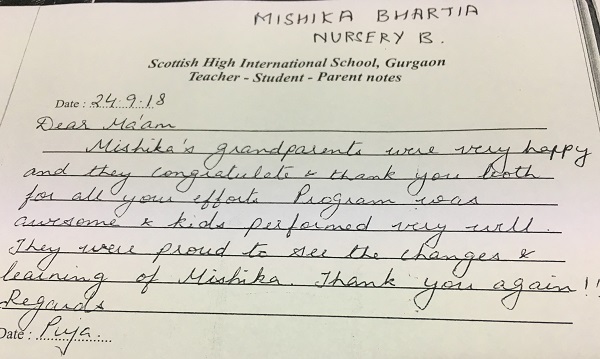 MISHIKA BHARTIA
NURSERY B.
Scottish High International School, Gurgaon
Teacher - Student - Parent notes
Date : 24.9.18
Dear Ma'am
Mishika's grandparents were very happy
and they congratulate & thank you both
for all your efforts. Program was
awesome & kids performed very well.
They were proud to see the changes &
learning of Mishika. Thank you again!!
Regards
Date : Puja.